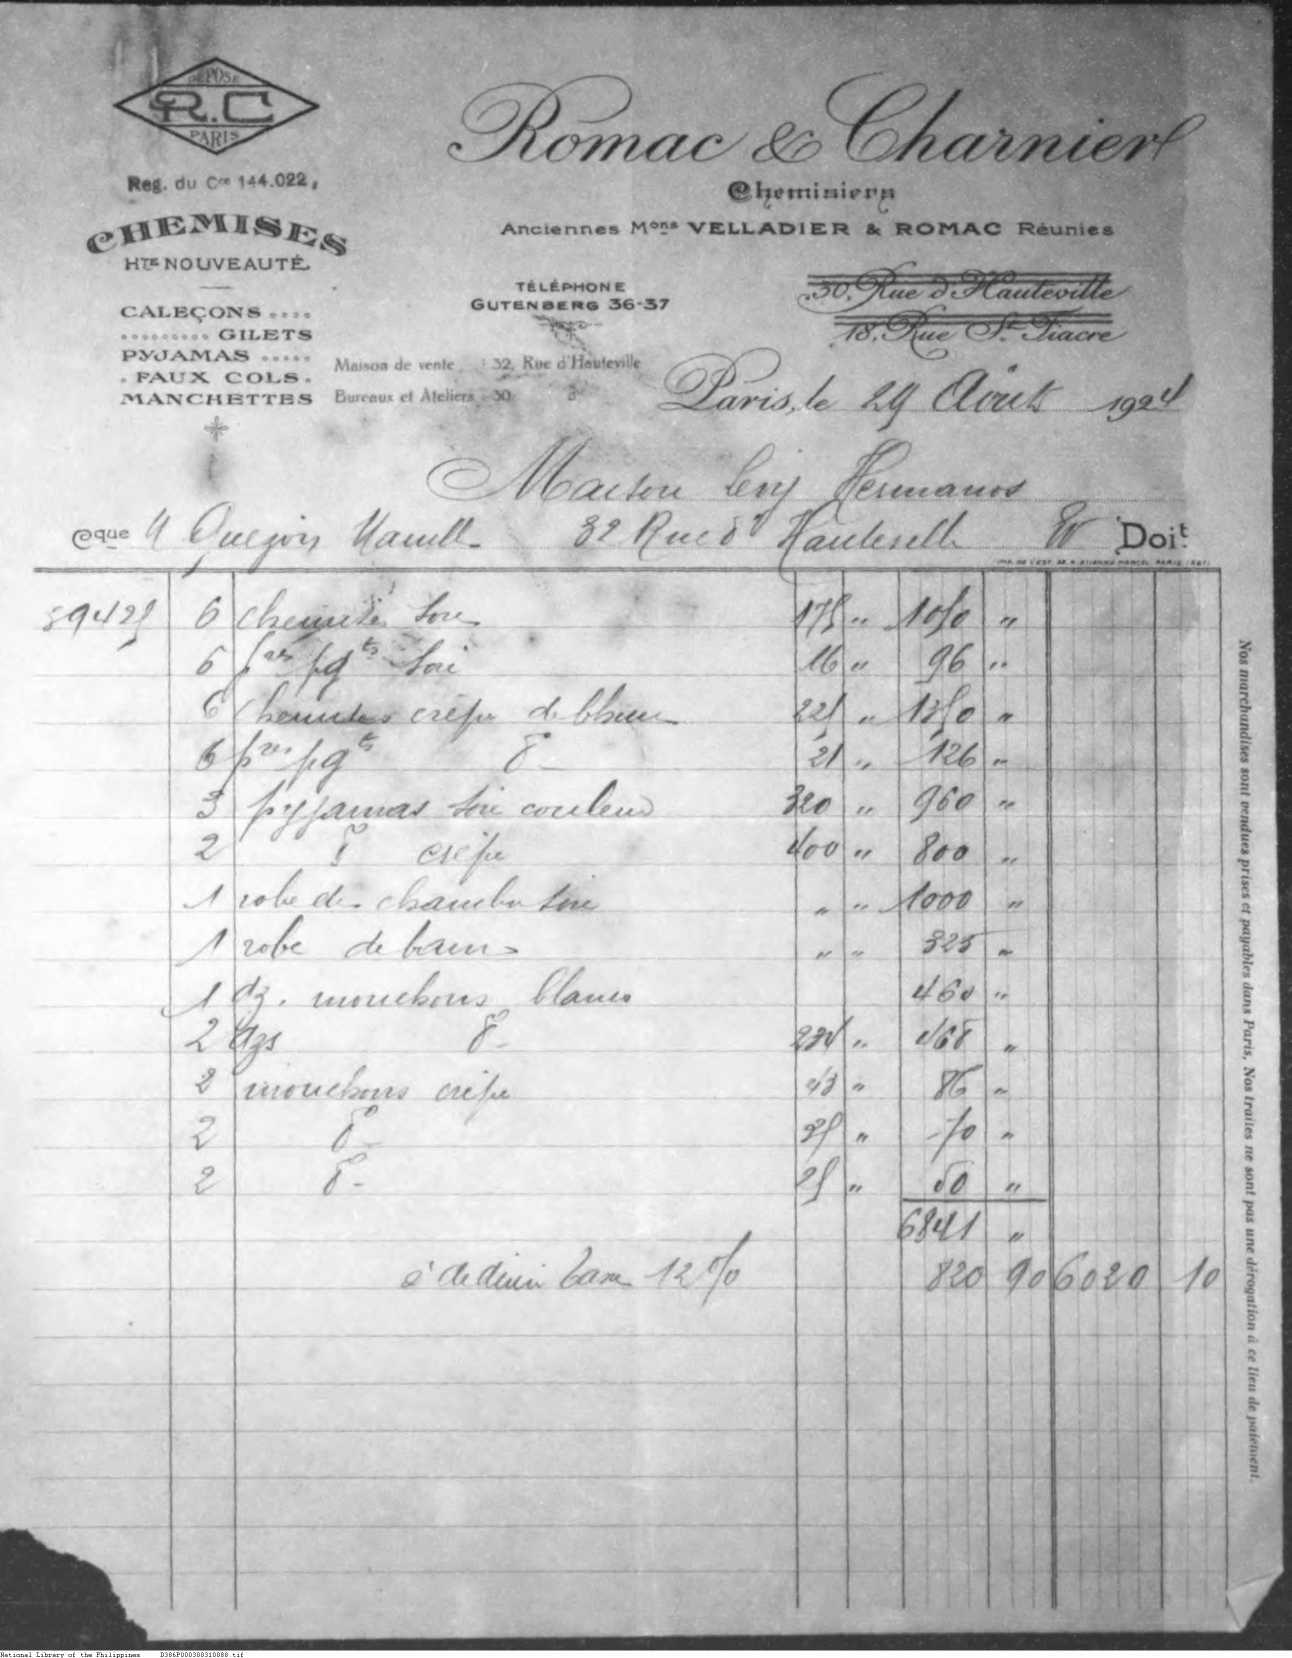 DÉPOSÉ
R.C
PARIS
Reg. du Cce 144.022,
CHEMISES
Htes NOUVEAUTÉ
CALEÇONS ....
......... GILETS
PYJAMAS .....
. FAUX COLS.
MANCHETTES
Romac & Charnier
Chemisiers
Anciennes Mons VELLADIER & ROMAC Réunies
TÉLÉPHONE
GUTENBERG 36-37
30, Rue d'Hauteville
18, Rue St Fiacre
Maison de vente : 32, Rue d'Hauteville
Bureaux et Ateliers : 30
Paris, le 29 Août 1924
Maison Levy Hermanos
que Quezon 32 Rue d'Hauteville Doit
IMP. DE L'EST, ETIENNE MARCEL, PARIS
6 chemises soie 175 " 1050 "
6 pres pgts soie 16 " 96 "
6 chemises crêpe de Chine 225 " 1350 "
6 pres pgts do 21 " 126 "
3 pyjamas soie couleur 320 " 960 "
2 do crêpe 400 " 800 "
1 robe de chambre soie " " 1000 "
1 robe de bain " " 325 "
1 dz. mouchoirs blancs 460 "
2 dzs do 234 " 468 "
2 mouchoirs crêpe 43 " 86 "
2 do 35 " 70 "
2 do 25 " 50 "
6841 "
à déduire taxe 12% 820 90 6020 10
Nos marchandises sont vendues prises et payables dans Paris. Nos traites ne sont pas une dérogation à ce lieu de paiement.
National Library of the Philippines D386P000300310888.tif